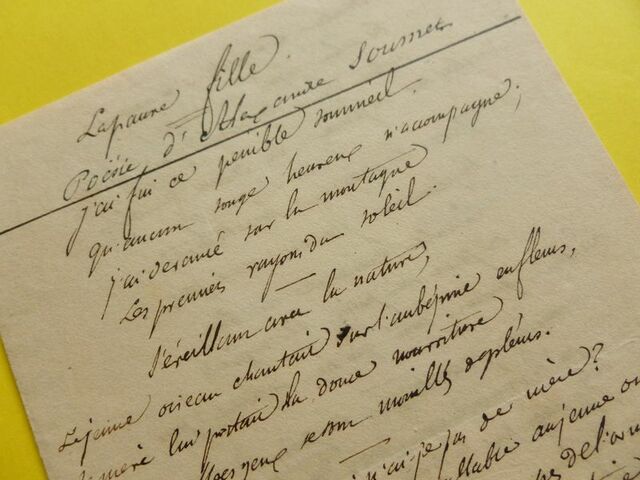 La pauvre fille.
Poésie, d'Alexandre Soumet
j'ai fui ce penible sommeil.
qu'aucun songe heureux n'accompagne;
j'ai devancé sur la montagne
Les premiers rayons du soleil.
S'éveillant avec la nature,
Le jeune oiseau chantait sur l'aubépine en fleurs,
Sa mère lui portait la douce nourriture
mes yeux se sont mouillés de pleurs.
n'ai-je pas de mère?
semblable au jeune
de l'orm